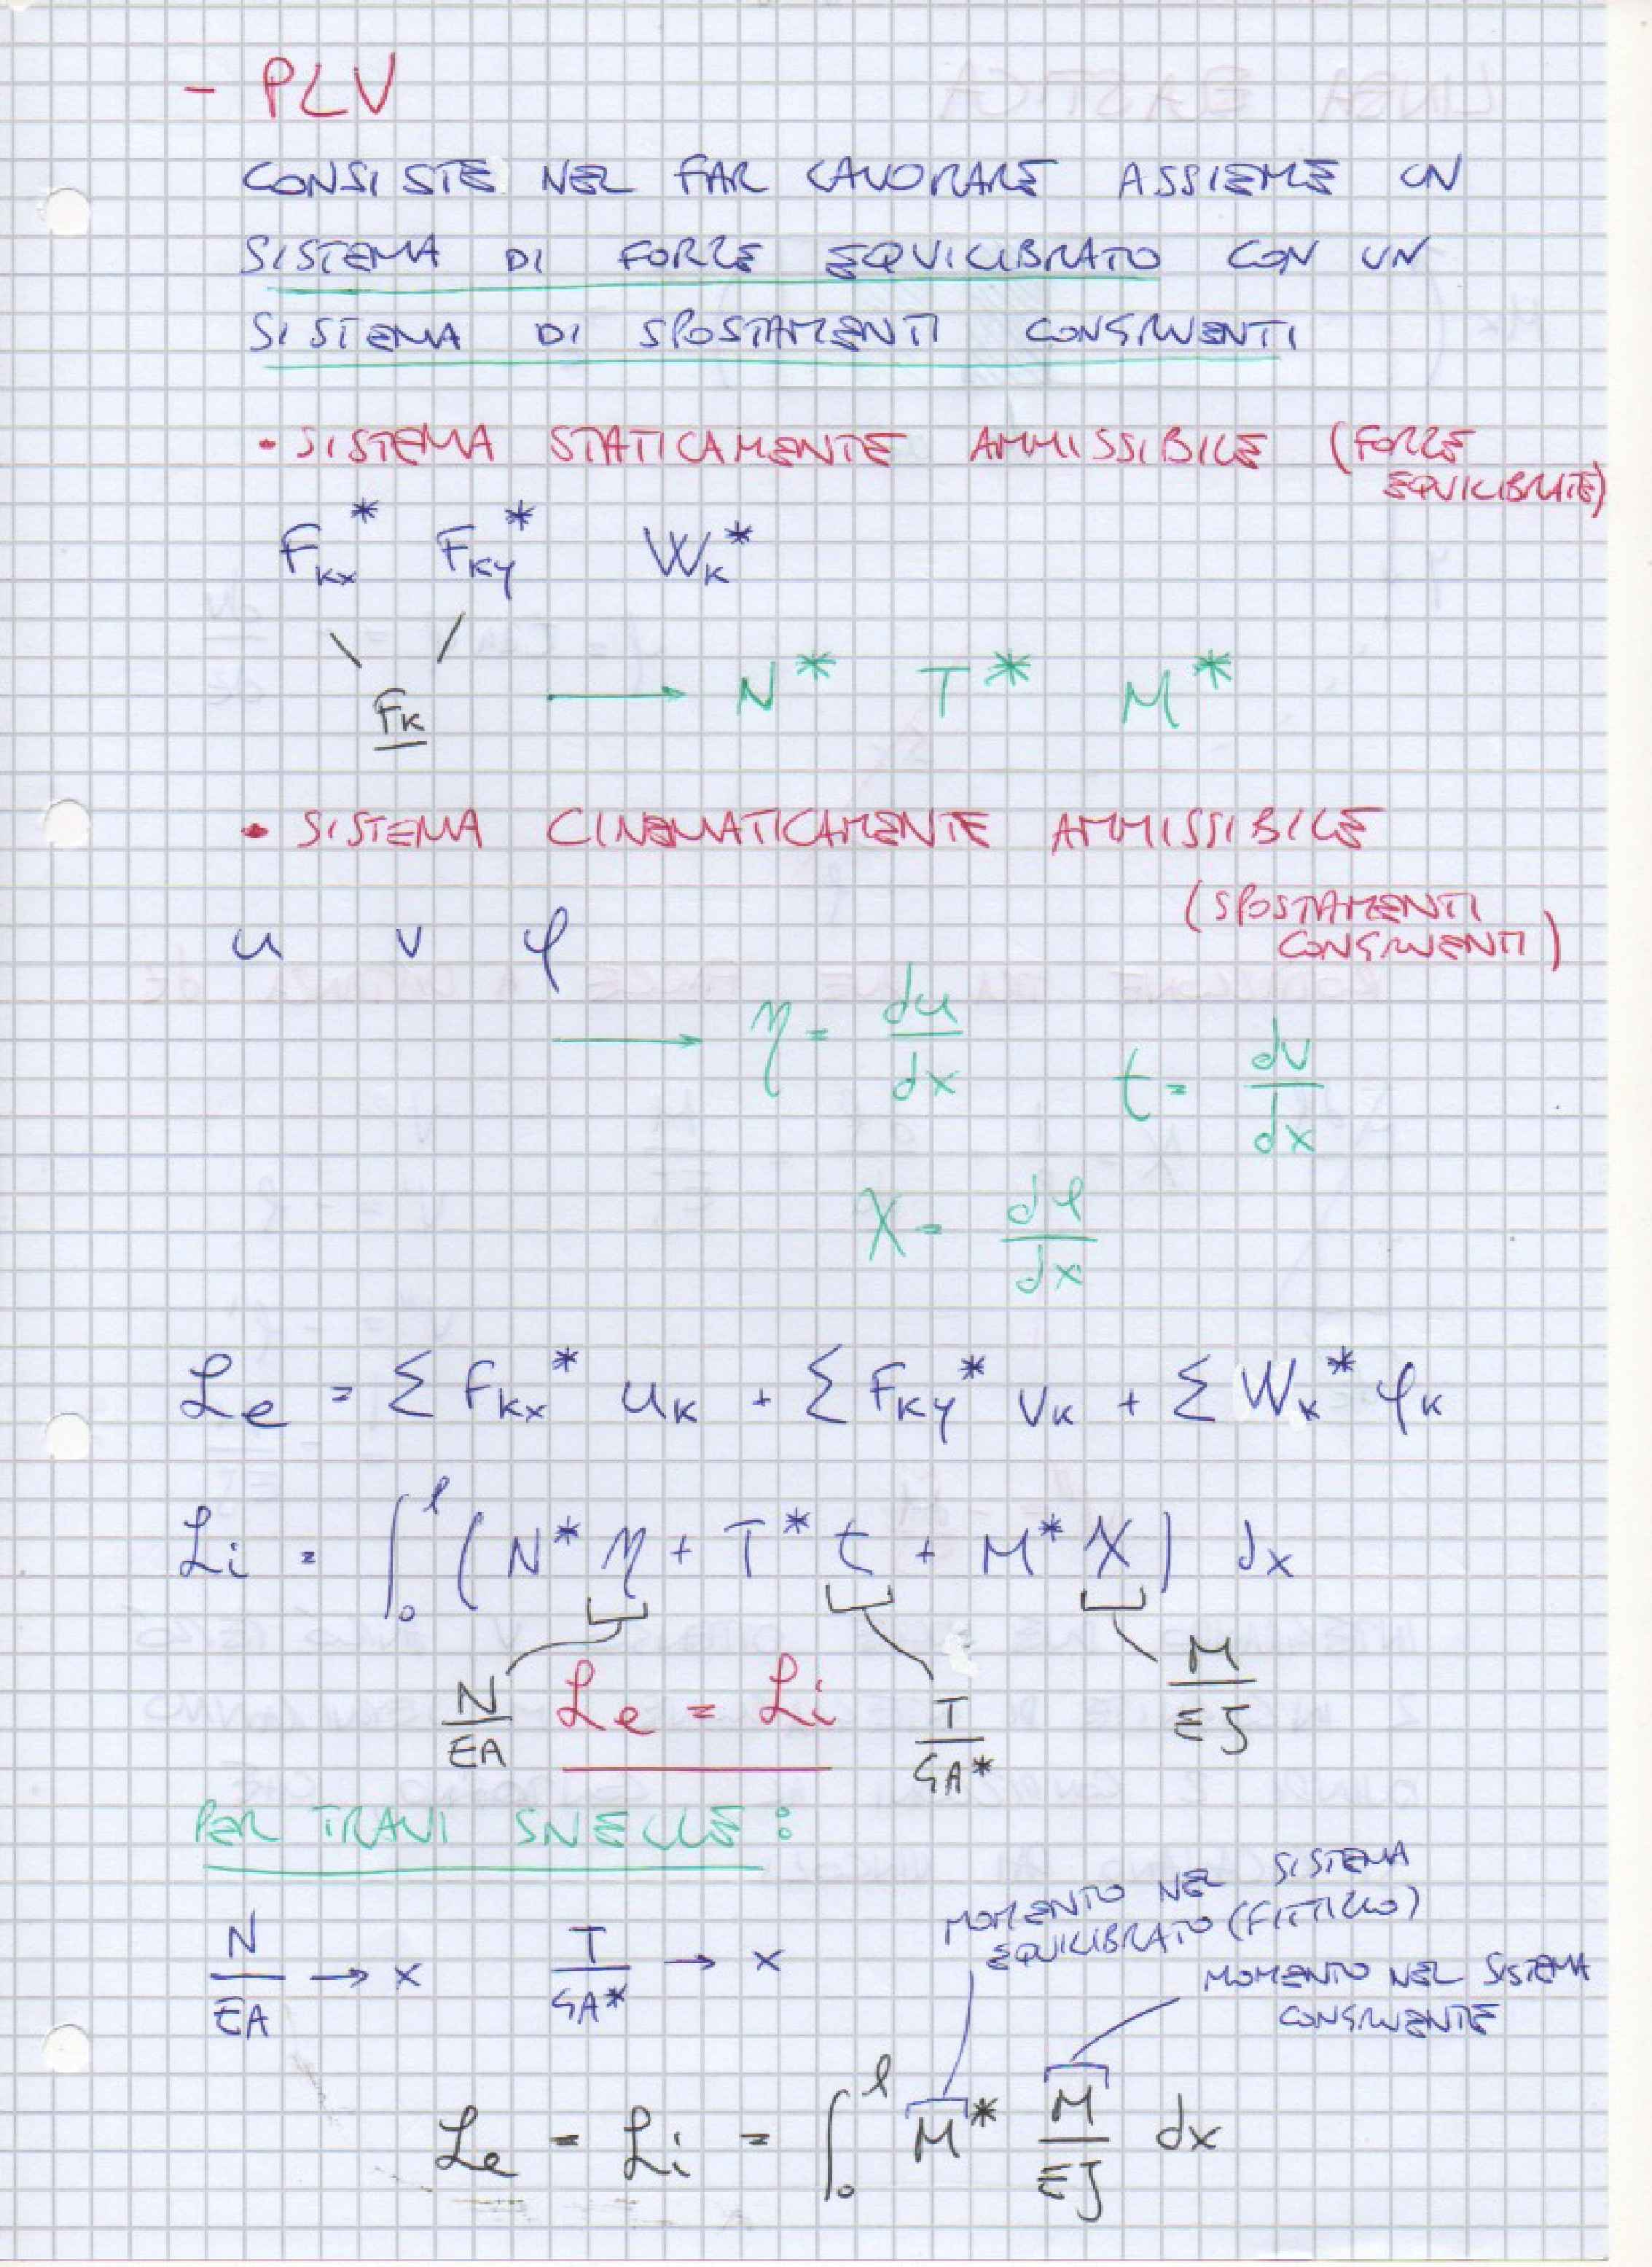 - PLV
CONSISTE NEL FAR LAVORARE ASSIEME UN
SISTEMA DI FORZE EQUILIBRATO CON UN
SISTEMA DI SPOSTAMENTI CONGRUENTI
• SISTEMA STATICAMENTE AMMISSIBILE (FORZE
EQUILIBRATE)
Fkx* Fky* Wk*
Fk → N* T* M*
• SISTEMA CINEMATICAMENTE AMMISSIBILE
(SPOSTAMENTI
CONGRUENTI)
u v φ
→ η = du/dx t = dv/dx
χ = dφ/dx
Le = Σ Fkx* uk + Σ Fky* vk + Σ Wk* φk
Li = ∫₀ˡ (N* η + T* t + M* χ) dx
N/EA Le = Li T/GA* M/EJ
PER TRAVI SNELLE:
MOMENTO NEL SISTEMA
EQUILIBRATO (FITTIZIO)
N/EA → x T/GA* → x
MOMENTO NEL SISTEMA
CONGRUENTE
Le = Li = ∫₀ˡ M* M/EJ dx